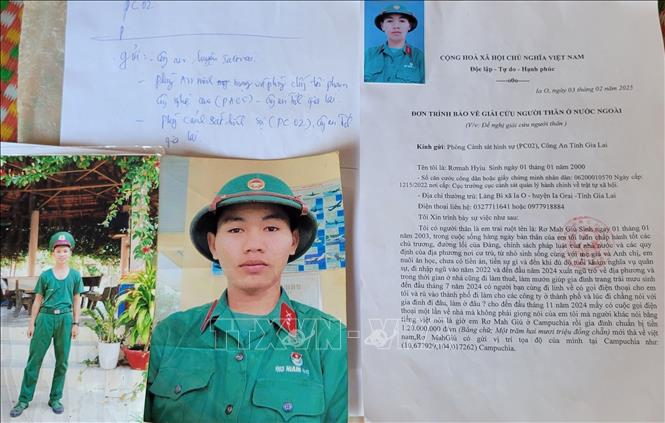 PC02.
gửi: - Công an huyện
- phòng An ninh mạng và phòng chống tội phạm
công nghệ cao (PA05) - Công an tỉnh gia lai.
- phòng cảnh sát hình sự (PC02), Công an tỉnh
gia lai
CỘNG HOÀ XÃ HỘI CHỦ NGHĨA VIỆT NAM
Độc lập - Tự do - Hạnh phúc
-----o0o-----
Ia O, ngày 03 tháng 02 năm 2025
ĐƠN TRÌNH BÁO VỀ GIẢI CỨU NGƯỜI THÂN Ở NƯỚC NGOÀI
(V/v: Đề nghị giải cứu người thân )
Kính gửi: Phòng Cảnh sát hình sự (PC02), Công An Tỉnh Gia Lai
Tên tôi là: Romah Hyiu Sinh ngày 01 tháng 01 năm 2000
- Số căn cước công dân hoặc giấy chứng minh nhân dân: 06200010570 Ngày cấp:
1215/2022 nơi cấp: Cục trưởng cục cảnh sát quản lý hành chính về trật tự xã hội.
- Địa chỉ thường trú: Làng Bi xã Ia O - huyện Ia Grai -Tỉnh Gia Lai
Điện thoại liên hệ: 0327711641 hoặc 0977918884
Tôi Xin trình bày sự việc như sau:
Tôi có người thân là em trai ruột tên là: Rơ Mah Giú Sinh ngày 01 tháng 01
năm 2003, trong cuộc sống hằng ngày bản thân của em tôi luôn chấp hành tốt các
chủ trương, đường lối của Đảng, chính sách pháp luật của nhà nước và các quy
định của địa phương nơi cư trú, từ nhỏ sinh sống cùng với mẹ già và Anh chị, em
nuôi ăn học, chưa có tiền án, tiền sự gì và khi đi đủ tuổi khám nghĩa vụ quân
sự, đi nhập ngũ vào năm 2022 và đến đầu năm 2024 xuất ngũ trở về địa phương và
trong thời gian ở nhà cũng đi làm thuê, làm mướn giúp gia đình trang trải mưu sinh
đến đầu tháng 7 năm 2024 có người bạn cùng đi lính về có gọi điện thoại cho em
tôi và rủ vào thành phố đi làm cho các công ty ở thành phố và lúc đi chẳng nói với
gia đình đi đâu, làm ở đâu ? cho đến đầu tháng 11 năm 2024 mấy có cuộc gọi điện
thoại một lần về nhà mà không phải giọng nói của em tôi mà người khác nói bằng
tiếng việt nói là giờ em Rơ Mah Giú ở Campuchia rồi gia đình chuẩn bị tiền
120.000.000 đ/vn (Bằng chữ; Một trăm hai mươi triệu đồng chẵn) mới thả về việt
nam,Rơ MahGiú có gửi vị trí tọa độ của mình tại Campuchia như:
(10,677929,104,017262) Campuchia.
TTXVN